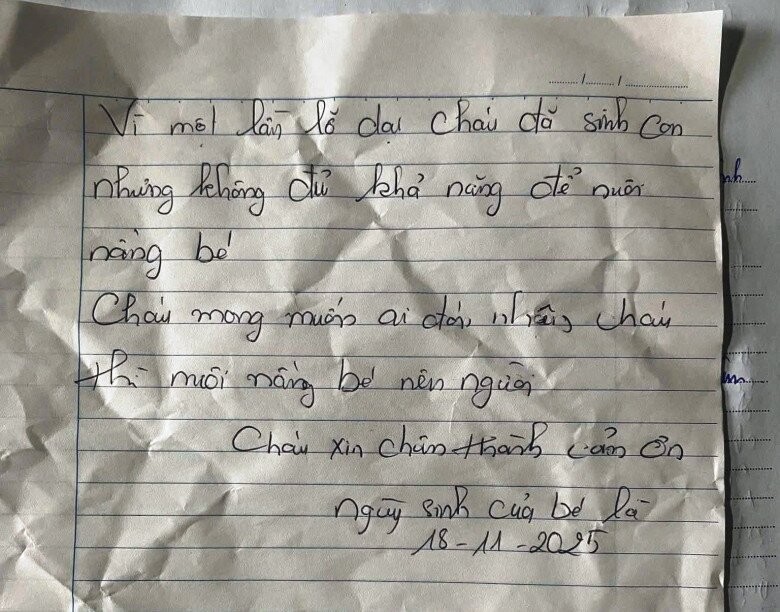 Vì một lần lỡ dại cháu đã sinh con
nhưng không đủ khả năng để nuôi
nấng bé
Cháu mong muốn ai đó nhận cháu
thì nuôi nấng bé nên người
Cháu xin chân thành cảm ơn
ngày sinh của bé là
18-11-2025